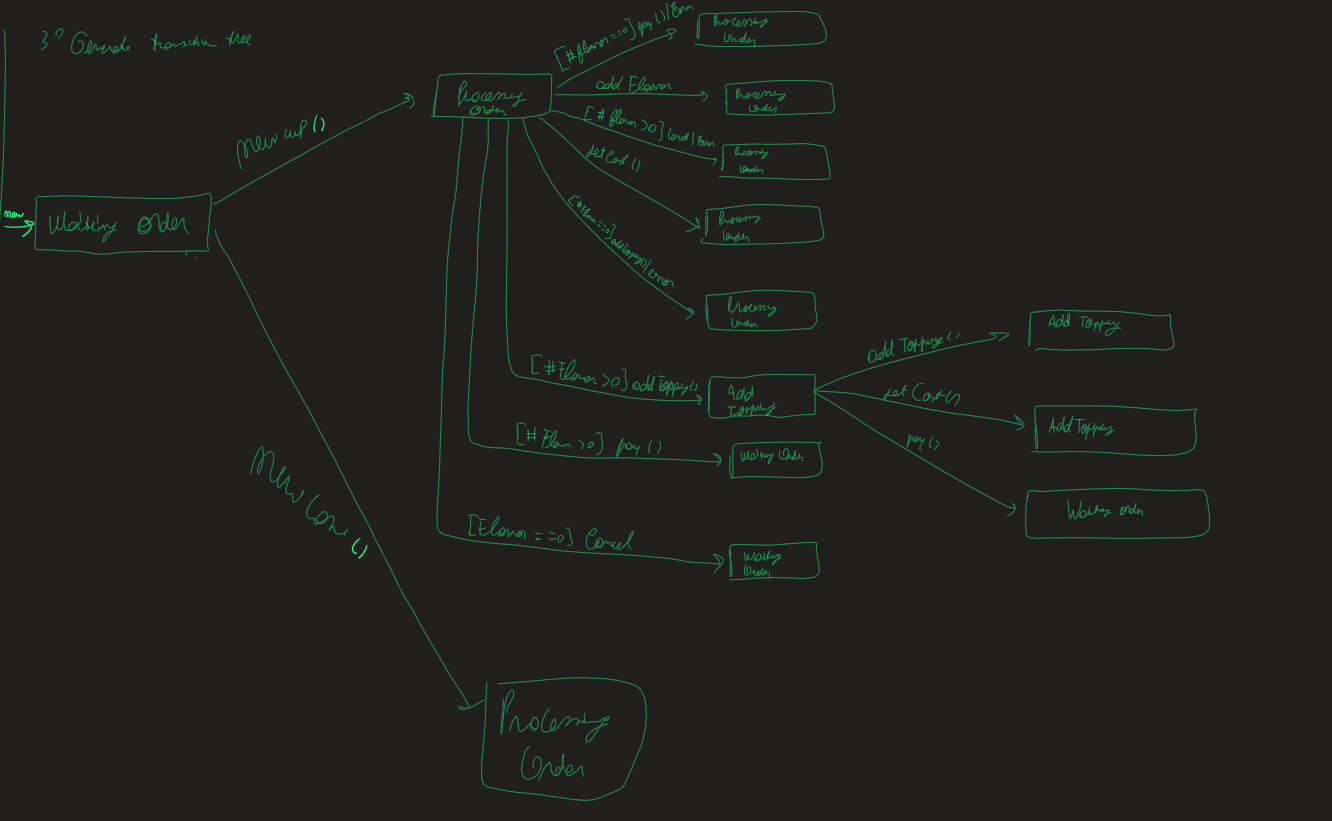 3º Generate transition tree
new
Waiting Order
new cup ()
new Cone ()
Processing
Order
[#flavor==0] pay ()/Error
Processing
Order
add Flavor
Processing
Order
[# flavor >0] Cancel/Error
Processing
Order
set Cost ()
Processing
Order
[#Flavor==0] add Topping()/error
Processing
Order
[#Flavor >0] add Topping()
Add
Topping
add Topping ()
Add Topping
set Cost ()
Add Topping
pay ()
Waiting order
[# Flavor >0] pay ()
Waiting Order
[Flavor ==0] Cancel
Waiting
Order
Processing
Order